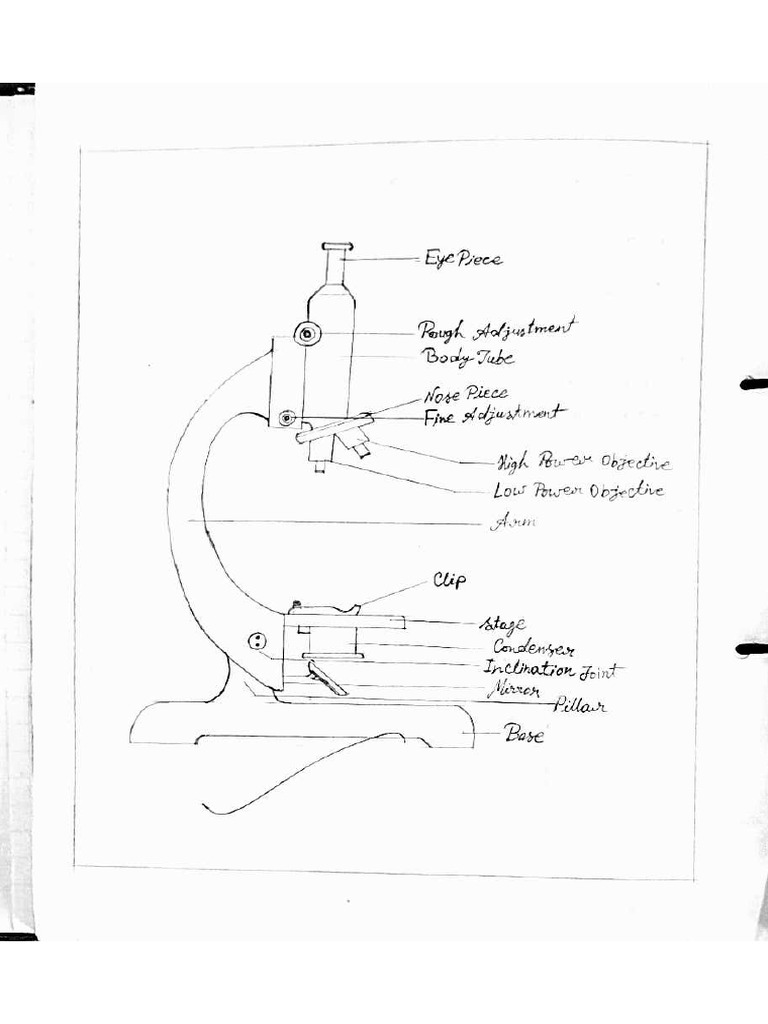 Eye Piece
Rough Adjustment
Body Tube
Nose Piece
Fine Adjustment
High Power Objective
Low Power Objective
Arm
Clip
Stage
Condenser
Inclination Joint
Mirror
Pillar
Base